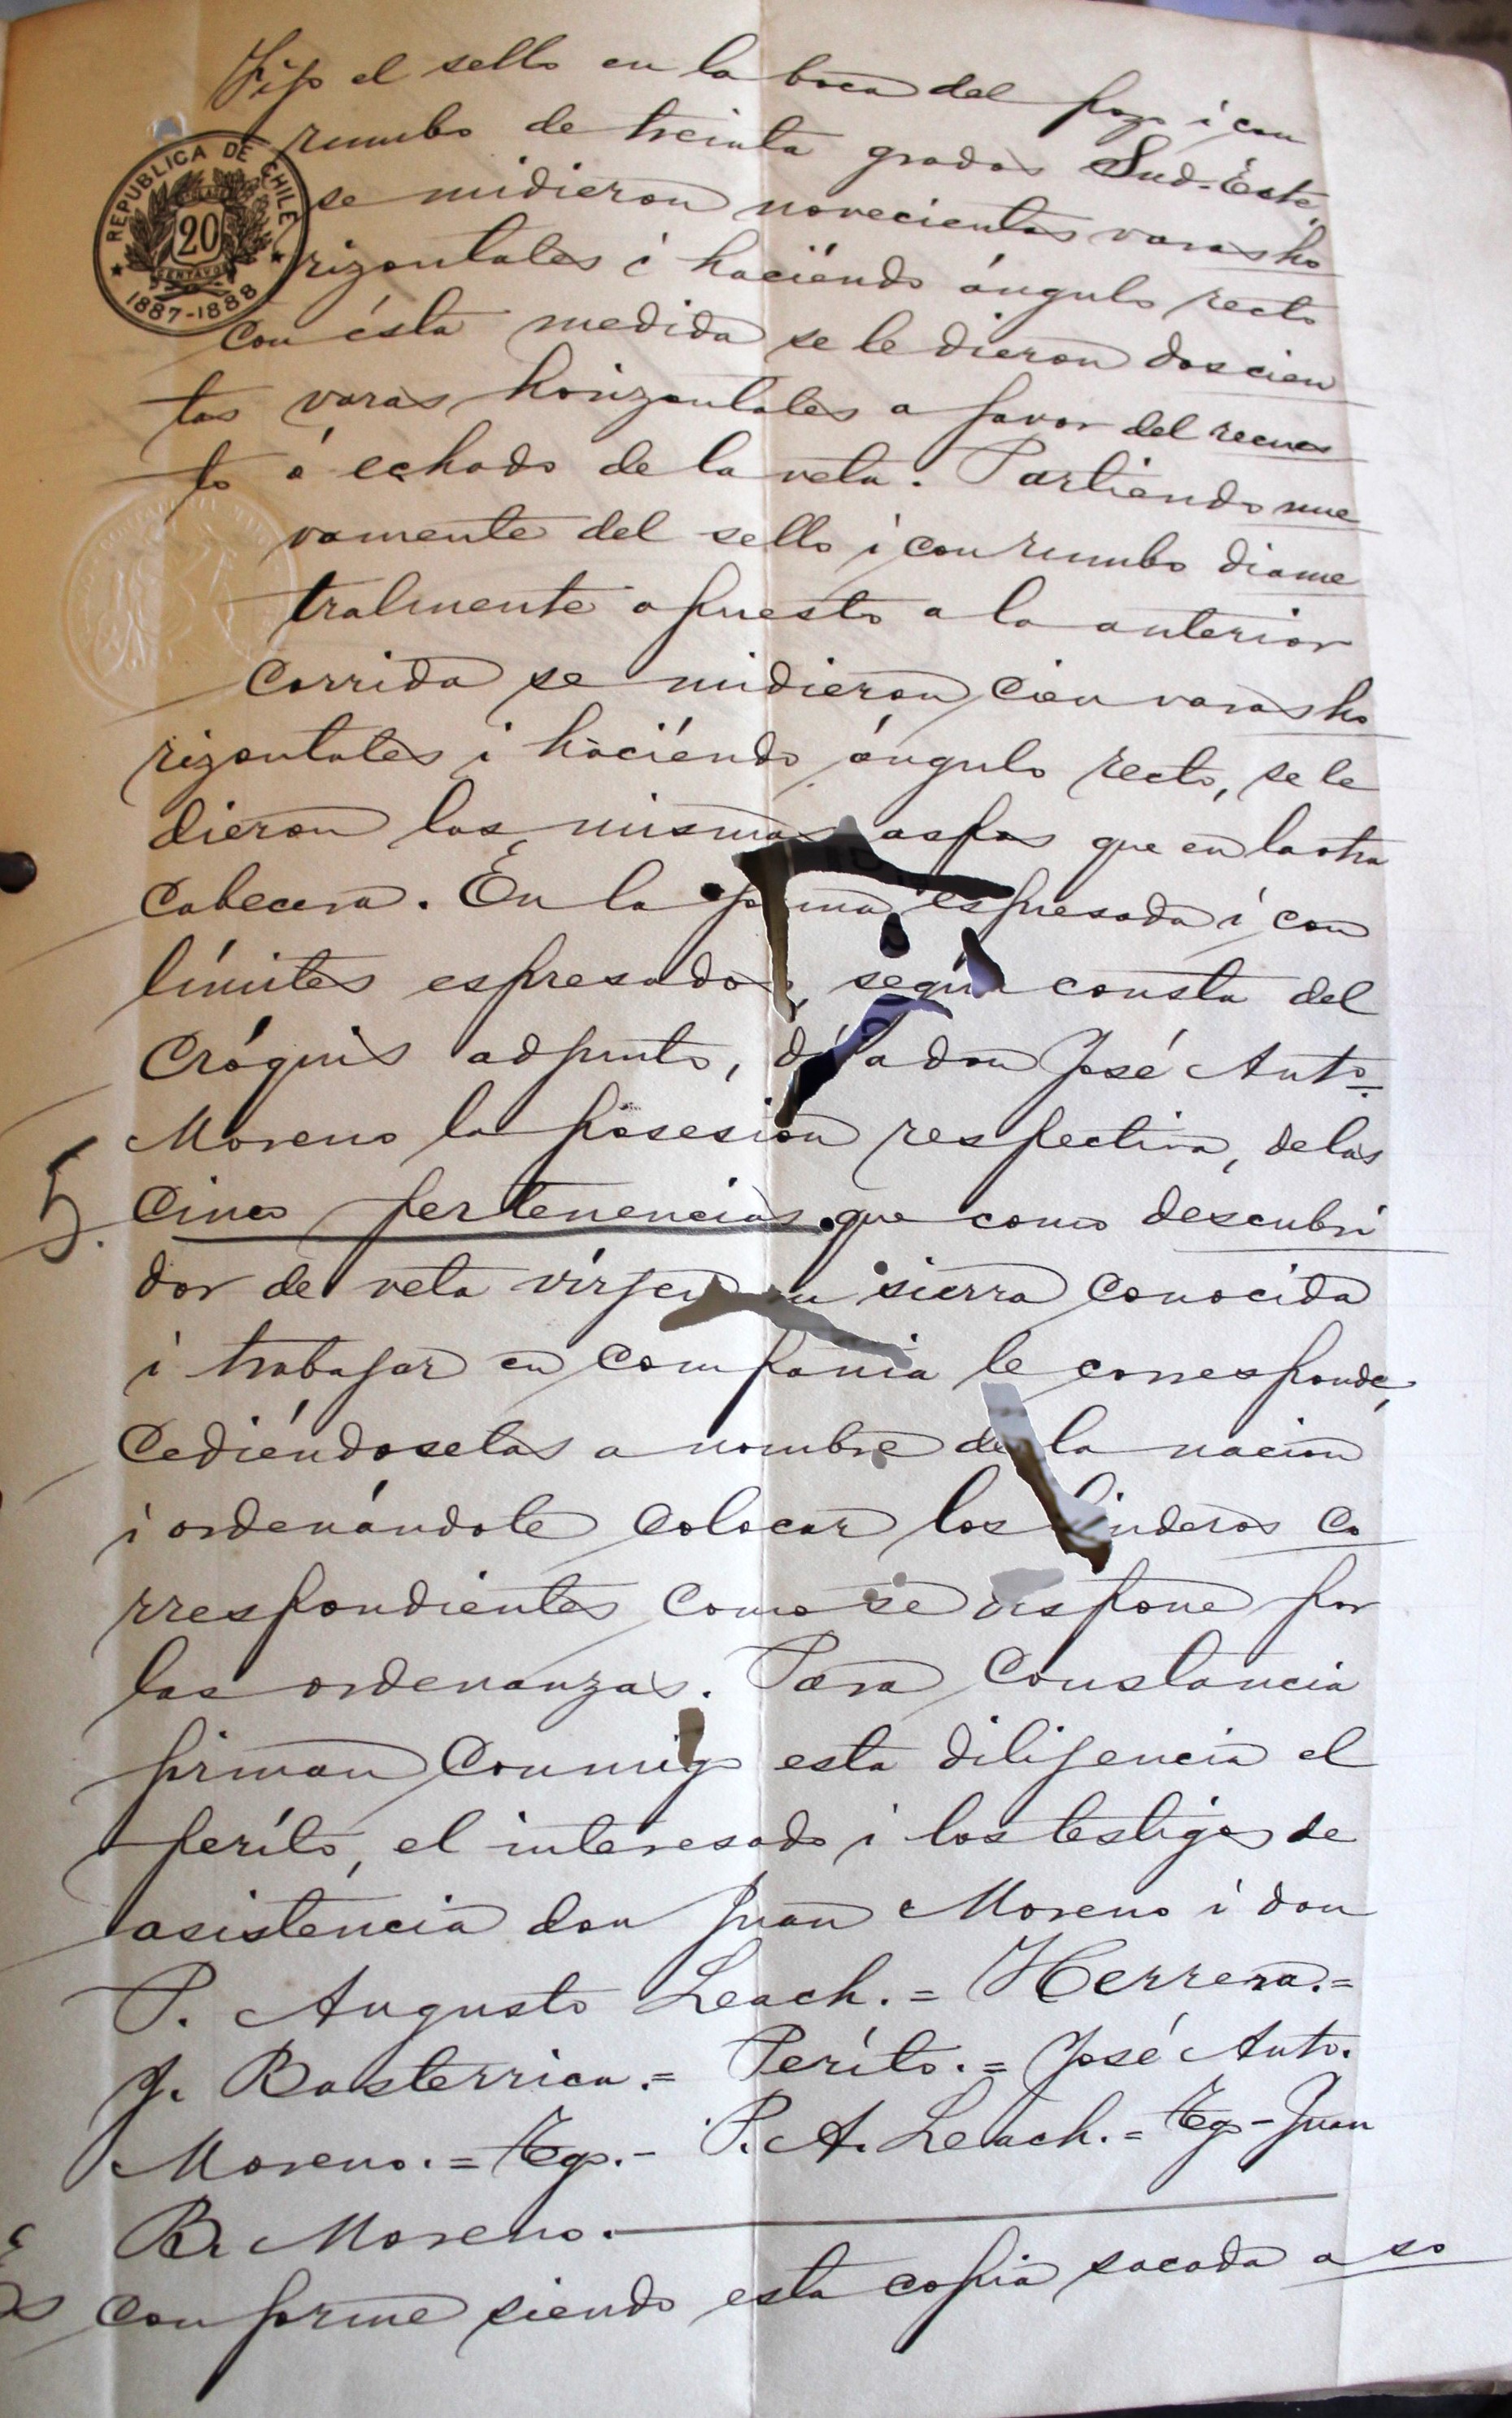 Fijo el sello en la boca del pozo i con
rumbo de treinta grados Sud-Este,
REPUBLICA DE CHILE
20
CENTAVOS
1887-1888
se midieron novecientas varas ho
rizontales i haciéndo ángulo recto
con ésta medida se le dieron doscien
tas varas horizontales a favor del recues
to ó echado de la veta. Partiendo nue
vamente del sello i con rumbo diame
tralmente opuesto a la anterior
corrida se midieron cien varas ho
rizontales i haciéndo ángulo recto, se le
dieron las mismas aspas que en la otra
cabecera. En la forma espresada i con
límites espresados, según consta del
Cróquis adjunto, dí a don José Anto.
Moreno la posesion respectiva, de las
5. Cinco pertenencias que como descubri
dor de veta vírjen en sierra conocida
i trabajar en compania le corresponde,
Cediéndoselas a nombre de la nacion
i ordenándole colocar los linderos co
rrespondientes como se dispone por
las ordenanzas. Para constancia
firman conmigo esta dilijencia el
períto, el interesado i los testigos de
asistencia don Juan Moreno i don
P. Augusto Leach.= Herrera.=
J. Basterrica.= Períto.= José Anto.
Moreno.= Tgo.- P. A. Leach.= Tgo- Juan
B. Moreno.
Conforme siendo esta copia sacada a so